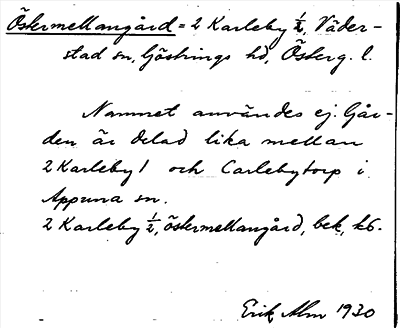 Östermellangård = 2 Karleby ½, Väder-
stad sn, Göstrings hd, Österg. l.
Namnet användes ej. Går-
den är delad lika mellan
2 Karleby 1 och Carlebytorp i
Appuna sn.
2 Karleby ½, östermellangård, bek, k6.
Erik Alm 1930